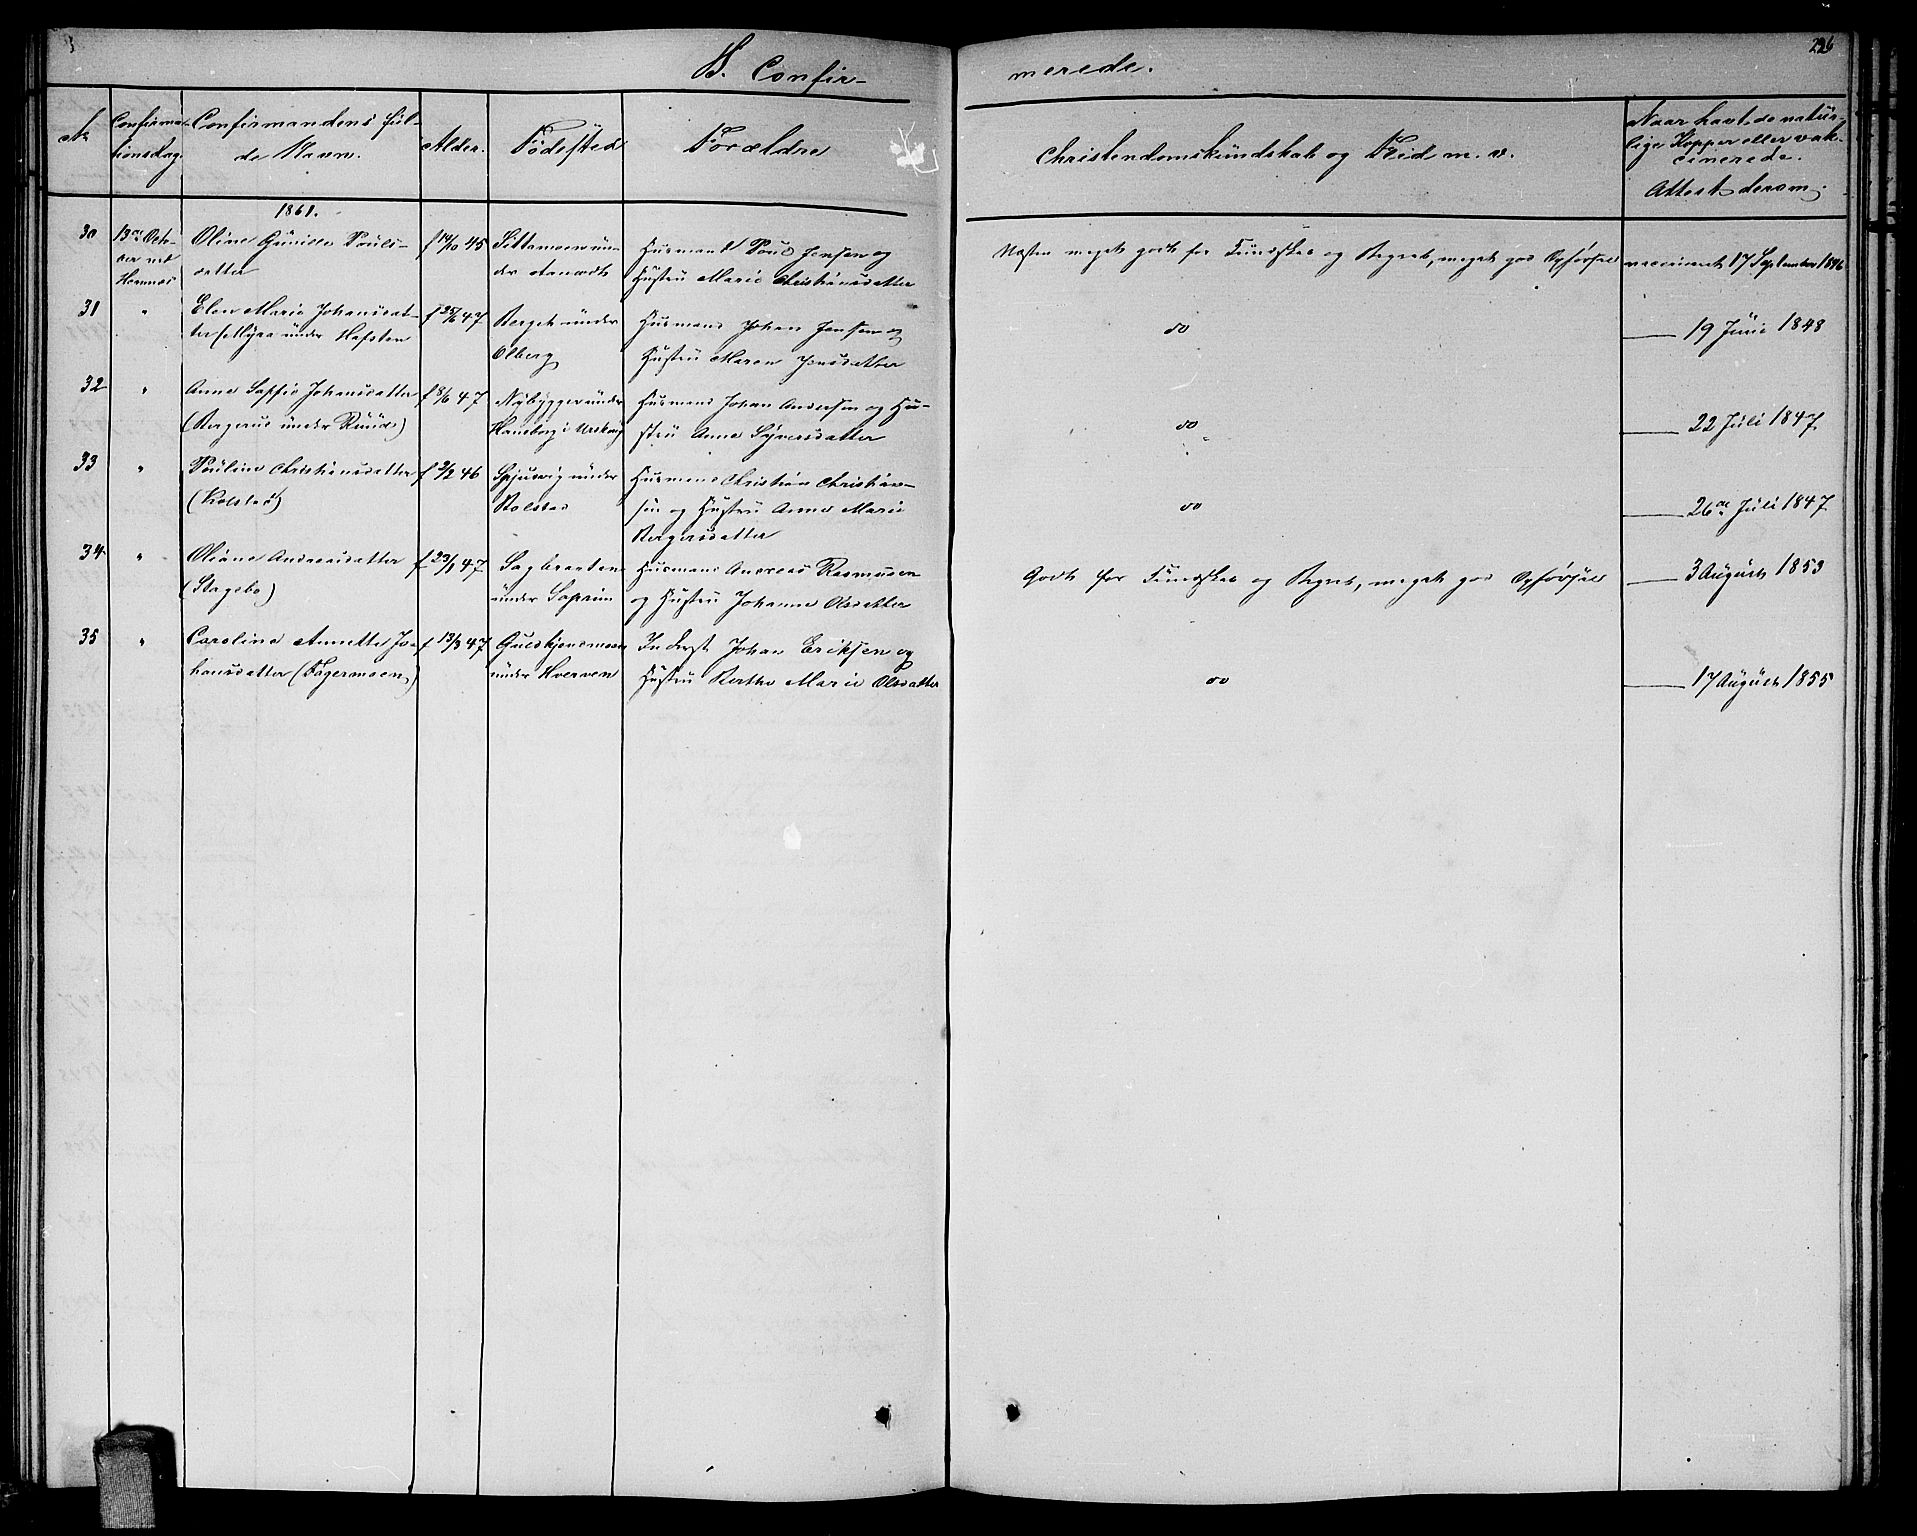 226
B. Confir-
merede.
№
Confirma-
tionsdag.
Confirmandens ful-
de Navn.
Alder.
Födested
Forældre
Christendomskundskab og Fleid m. v.
Naar havt de natur-
lige Kopper eller vak-
cinerede.
Attest derom.
1861.
30
13de Octo-
ber ved
Hemnæs
Oline Gunilde Pouls-
datter
f 14/10 45
under Aanerudt
Husmand Poul Jensen og
Hustru Marie Christiansdatter
Næsten meget godt for Kundskab og Begreb, meget god Opførsel
vaccineret 17 September 1846
31
"
Elen Marie Johansdat-
ter (Myra under Hafsten
f 25/6 47
Berget under
Olberg
Husmand Johan Jensen og
Hustru Maren Jensdatter
do
— 19 Junie 1848
32
"
Anne Sophie Johansdatter
(Bergerud under Ruud)
f 8/6 47
Nybygget under
Haneborg i Urskoug
Husmand Johan Andersen og Hu-
stru Anne Syversdatter
do
— 22 Juli 1847
33
"
Pauline Christiansdatter
(Kolstad)
f 2/2 46
under
Kolstad
Husmand Christian Christian-
sen og Hustru Anne Marie
Bergersdatter
do
— 26de Juli 1847
34
"
Oliane Andreasdatter
(Stagebo)
f 23/1 47
Sagbraaten
under Soprim
Husmand Andreas Rasmusen
og Hustru Johanne Olsdatter
Godt for Kundskab og Begreb, meget god Opførsel
— 3 August 1853
35
"
Caroline Annette Jo-
hansdatter (Fagermoen)
f 13/3 47
Gulskjønsmoen
under Hverven
Inderst Johan Eriksen og
Hustru Berthe Marie Olsdatter
do
— 17 August 1855